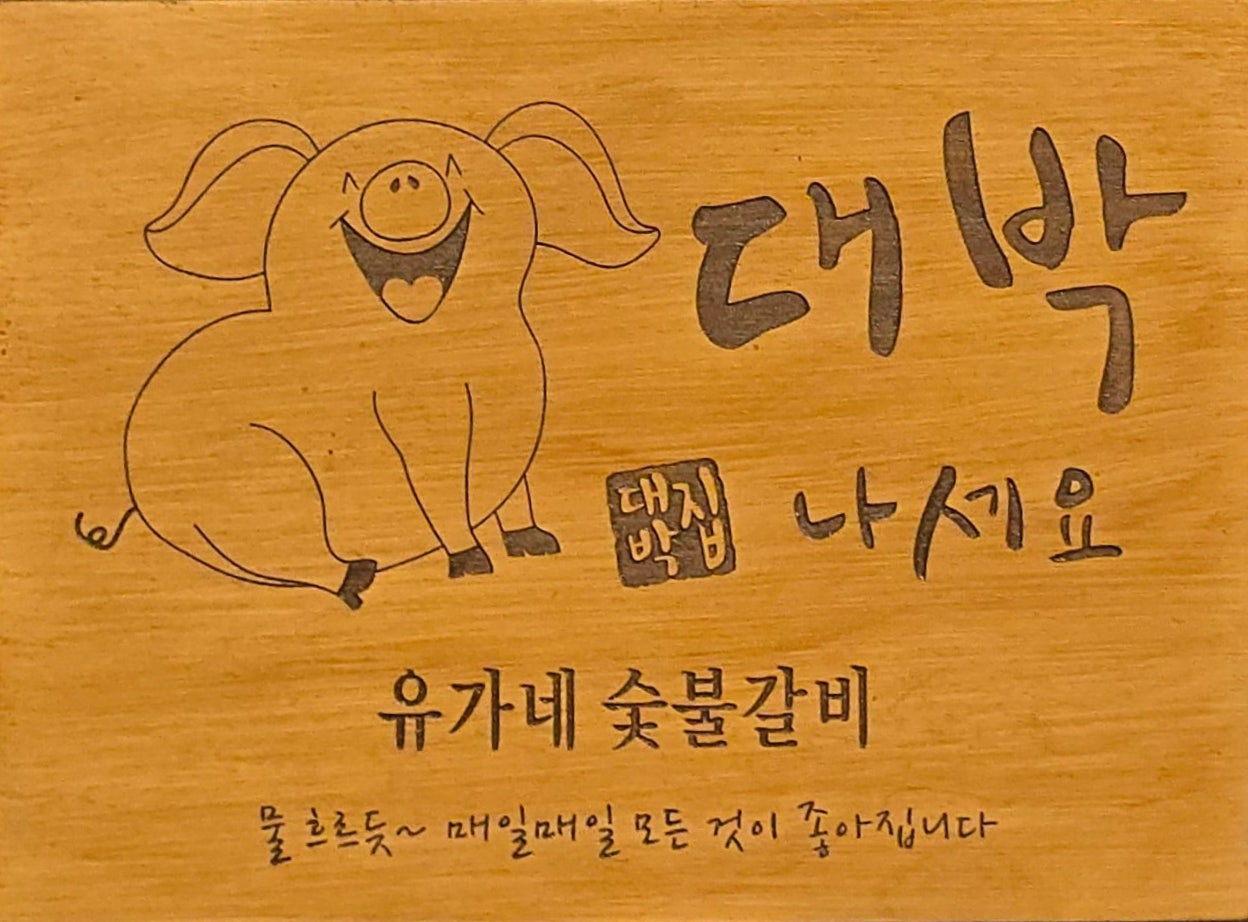 대박
대박집
나세요
유가네 숯불갈비
물 흐르듯~ 매일매일 모든 것이 좋아집니다